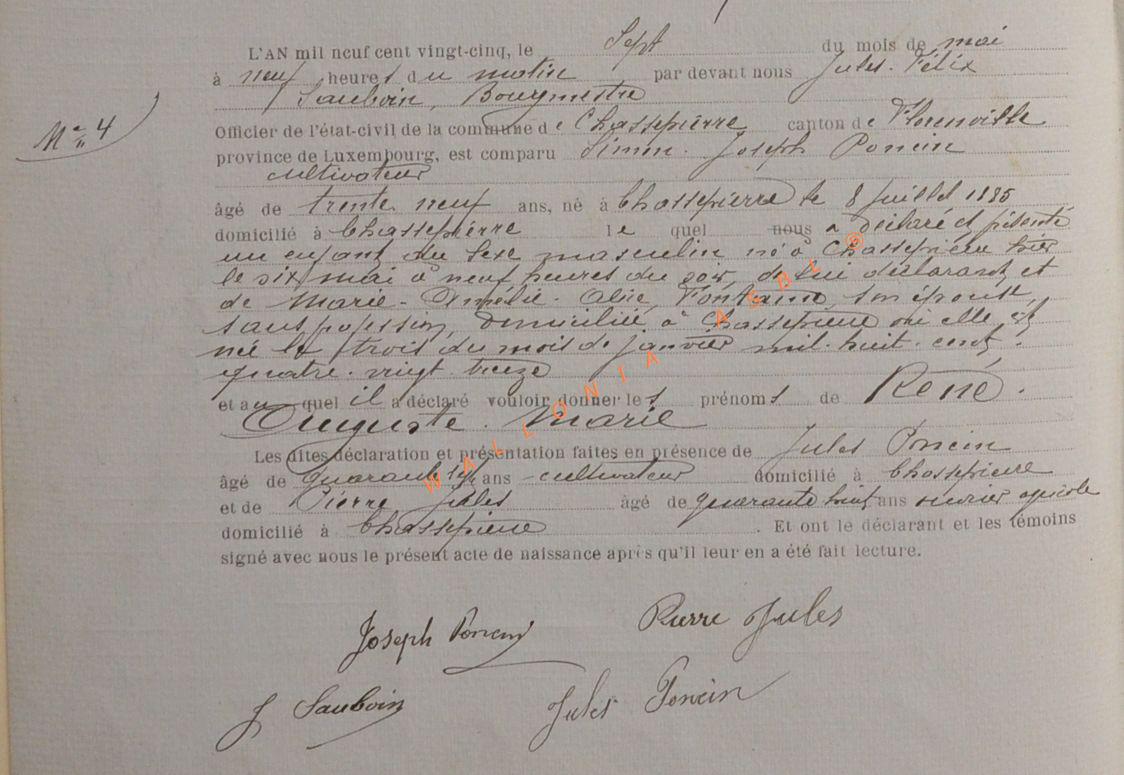 L'AN mil neuf cent vingt-cinq, le Sept du mois de mai
à neuf heures du matin par devant nous Jules. Félix
Sauboin, Bourgmestre
N° 4
Officier de l'état-civil de la commune de Chassepierre canton de Florenville
province de Luxembourg, est comparu Simon. Joseph Poncin
cultivateur
âgé de trente neuf ans, né à Chassepierre le 8 Juillet 1885
domicilié à Chassepierre lequel nous a déclaré et présenté
un enfant du sexe masculin né à Chassepierre hier
le six mai à neuf heures du soir, de lui déclarant et
de Marie - Amélie - Fontaine, son épouse,
sans profession, domiciliée à Chassepierre où elle est
née le trois du mois de janvier mil. huit. cent.
quatre. vingt. treize
et auquel il a déclaré vouloir donner les prénoms de René.
Auguste. Marie
Les dites déclaration et présentation faites en présence de Jules Poncin
âgé de quarante ans cultivateur domicilié à Chassepierre
et de Pierre Jules âgé de quarante huit ans ouvrier agricole
domicilié à Chassepierre. Et ont le déclarant et les témoins
signé avec nous le présent acte de naissance après qu'il leur en a été fait lecture.
Joseph Poncin Pierre Jules
J Sauboin Jules Poncin
WALLONIA ASBL ©